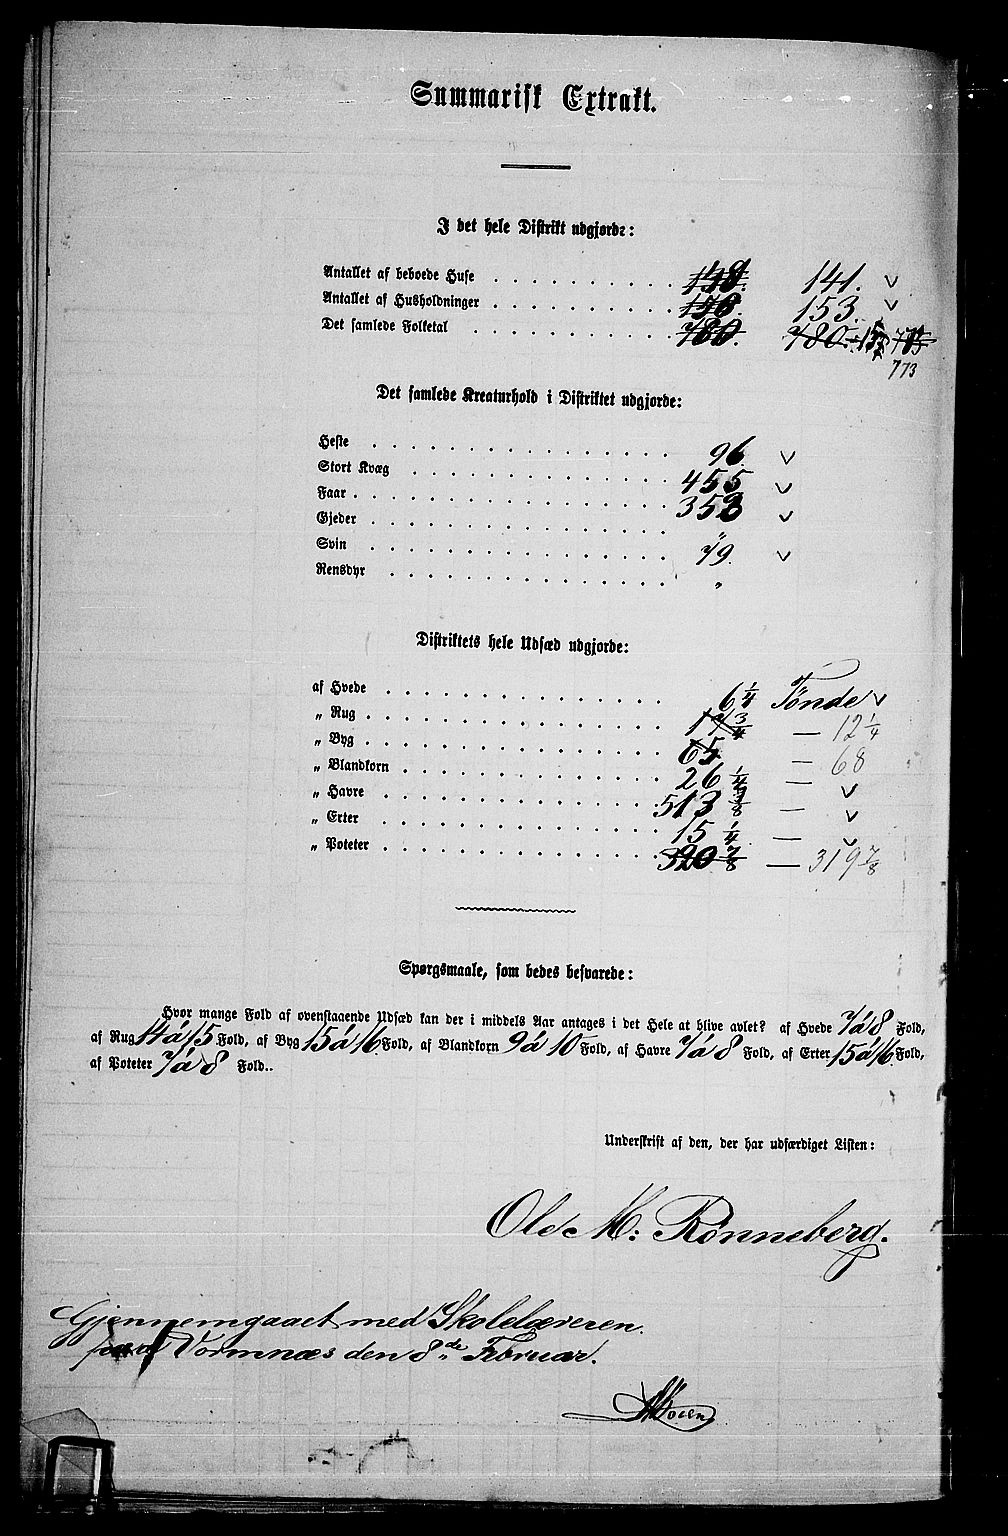 Summarisk Extrakt.
I det hele Distrikt udgjorde:
Antallet af beboede Huse . . . . . . . . 149. 141. ✓
Antallet af Husholdninger . . . . . . . . 156. 153. ✓
Det samlede Folketal . . . . . . . . 780. 780.
773
Det samlede Kreaturhold i Distriktet udgjorde:
Heste . . . . . . . . 96. ✓
Stort Kvæg . . . . . . . . 455 ✓
Faar . . . . . . . . 353 ✓
Gjeder . . . . . . . . "
Svin . . . . . . . . 79. ✓
Rensdyr . . . . . . . . "
Distriktets hele Udsæd udgjorde:
af Hvede . . . . . . . . 6 1/4 Tønde ✓
„ Rug . . . . . . . . 17 3/4 — 12 1/4
„ Byg . . . . . . . . 65 — 68
„ Blandkorn . . . . . . . . 26 1/4 — ✓
„ Havre . . . . . . . . 513 3/8 — ✓
„ Erter . . . . . . . . 15 1/4 — ✓
„ Poteter . . . . . . . . 320 7/8 — 319 7/8
Spørgsmaale, som bedes besvarede:
Hvor mange Fold af ovenstaaende Udsæd kan der i middels Aar antages i det Hele at blive avlet? af Hvede 7 á 8 Fold,
af Rug 14 á 15 Fold, af Byg 15 á 16 Fold, af Blandkorn 9 á 10 Fold, af Havre 7 á 8 Fold, af Erter 15 á 16 Fold,
af Poteter 7 á 8 Fold..
Underskrift af den, der har udfærdiget Listen:
Ole M: Rønneberg.
Gjennemgaaet med Skolelæreren.
paa Vormnæs den 8de Februar.